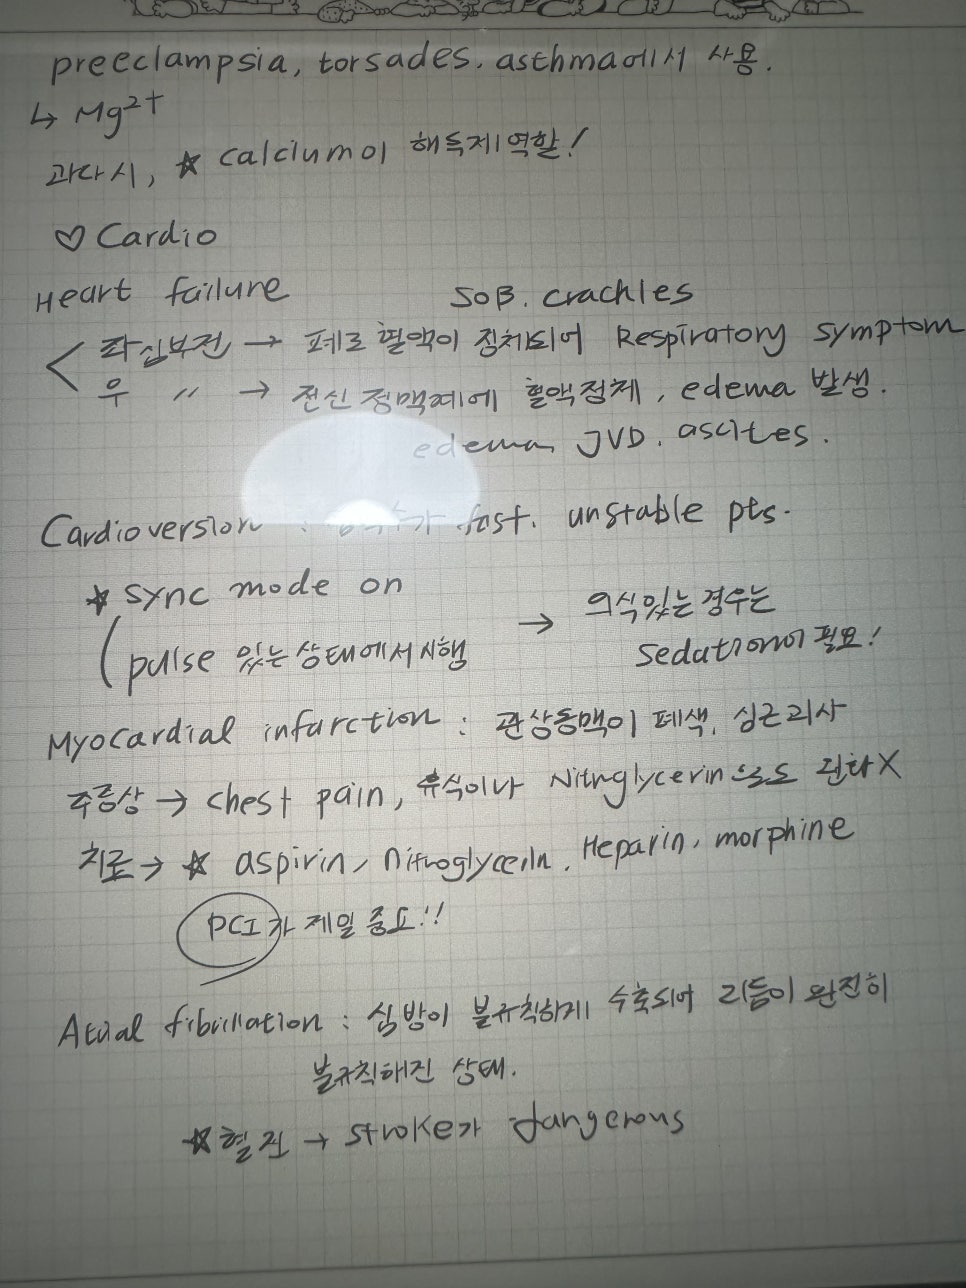 preeclampsia, torsades. asthma에서 사용.
↳ Mg²⁺
과다시, ☆ calcium이 해독제역할!
♡ Cardio
Heart failure SOB. crackles
< 좌심부전 → 폐로 혈액이 정체되어 Respiratory symptom
우 〃 → 전신 정맥계에 혈액정체, edema 발생.
edema, JVD. ascites.
Cardioversion : 가 fast. unstable pts.
☆ sync mode on
( pulse 있는 상태에서 시행 → 의식있는 경우는
Sedation이 필요!
Myocardial infarction : 관상동맥이 폐색, 심근괴사
주증상 → chest pain, 휴식이나 Nitroglycerin으로도 완화X
치료 → ☆ aspirin, Nitroglycerin. Heparin, morphine
PCI가 제일 중요!!
Atrial fibrillation : 심방이 불규칙하게 수축되어 리듬이 완전히
불규칙해진 상태.
☆ 혈전 → stroke가 dangerous